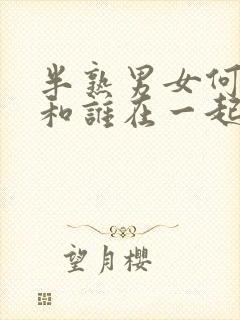 半熟男女何
和誰在一起
望月櫻